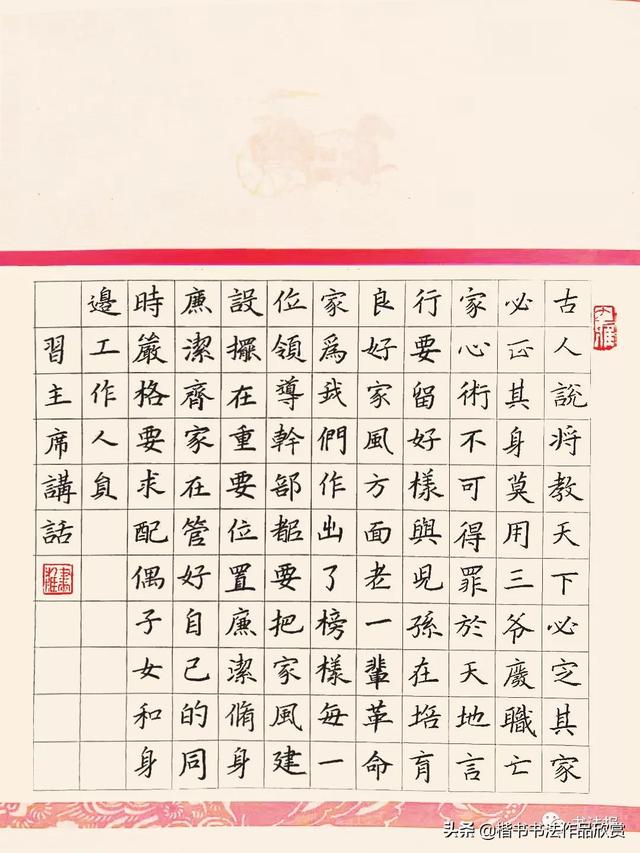 古人說將教天下必定其家
必正其身莫用三爷廢職亡
家心術不可得罪於天地言
行要留好樣與兒孫在培育
良好家風方面老一輩革命
家爲我們作出了榜樣每一
位領導幹部都要把家風建
設擺在重要位置廉潔脩身
廉潔齊家在管好自己的同
時嚴格要求配偶子女和身
邊工作人員
習主席講話
头条@楷书书法作品欣赏